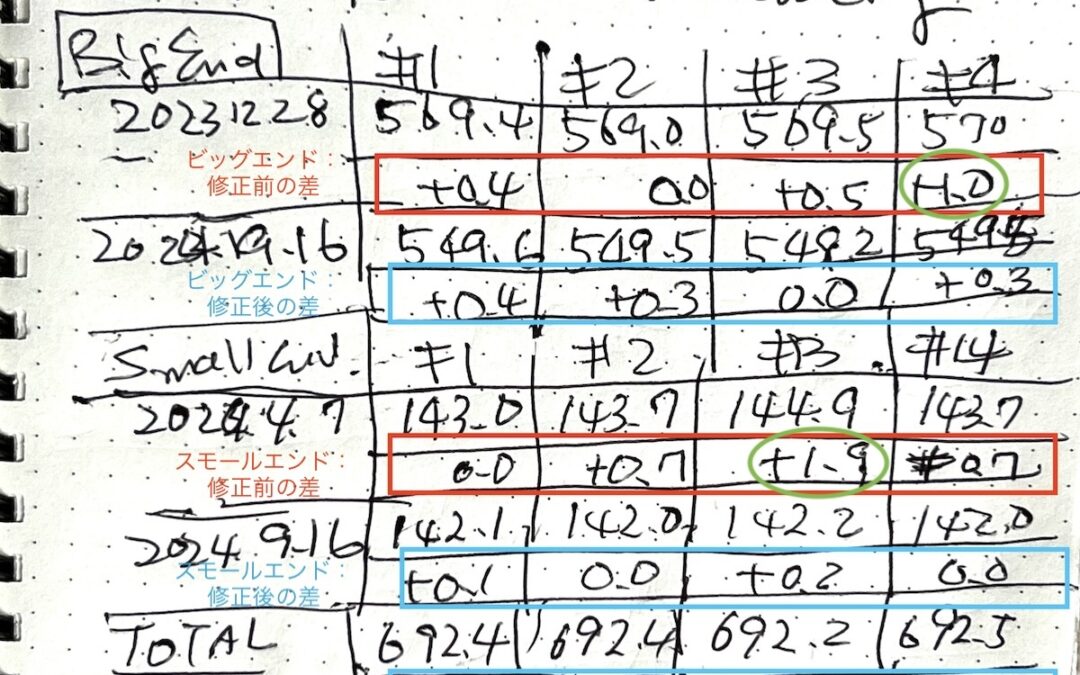 Big End #1 #2 #3 #4
20231228 569.4 569.0 569.5 570
ビッグエンド：
修正前の差 +0.4 0.0 +0.5 +1.0
9.16 549.6 549.5 548.2
ビッグエンド：
修正後の差 +0.4 +0.3 0.0 +0.3
Small #1 #2 #3 #4
2024.4.7 143.0 143.7 144.9 143.7
スモールエンド：
修正前の差 0.0 +0.7 +1.9 0.7
2024.9.16 142.1 142.0 142.2 142.0
スモールエンド：
修正後の差 +0.1 0.0 +0.2 0.0
TOTAL 692.4 692.4 692.2 692.5